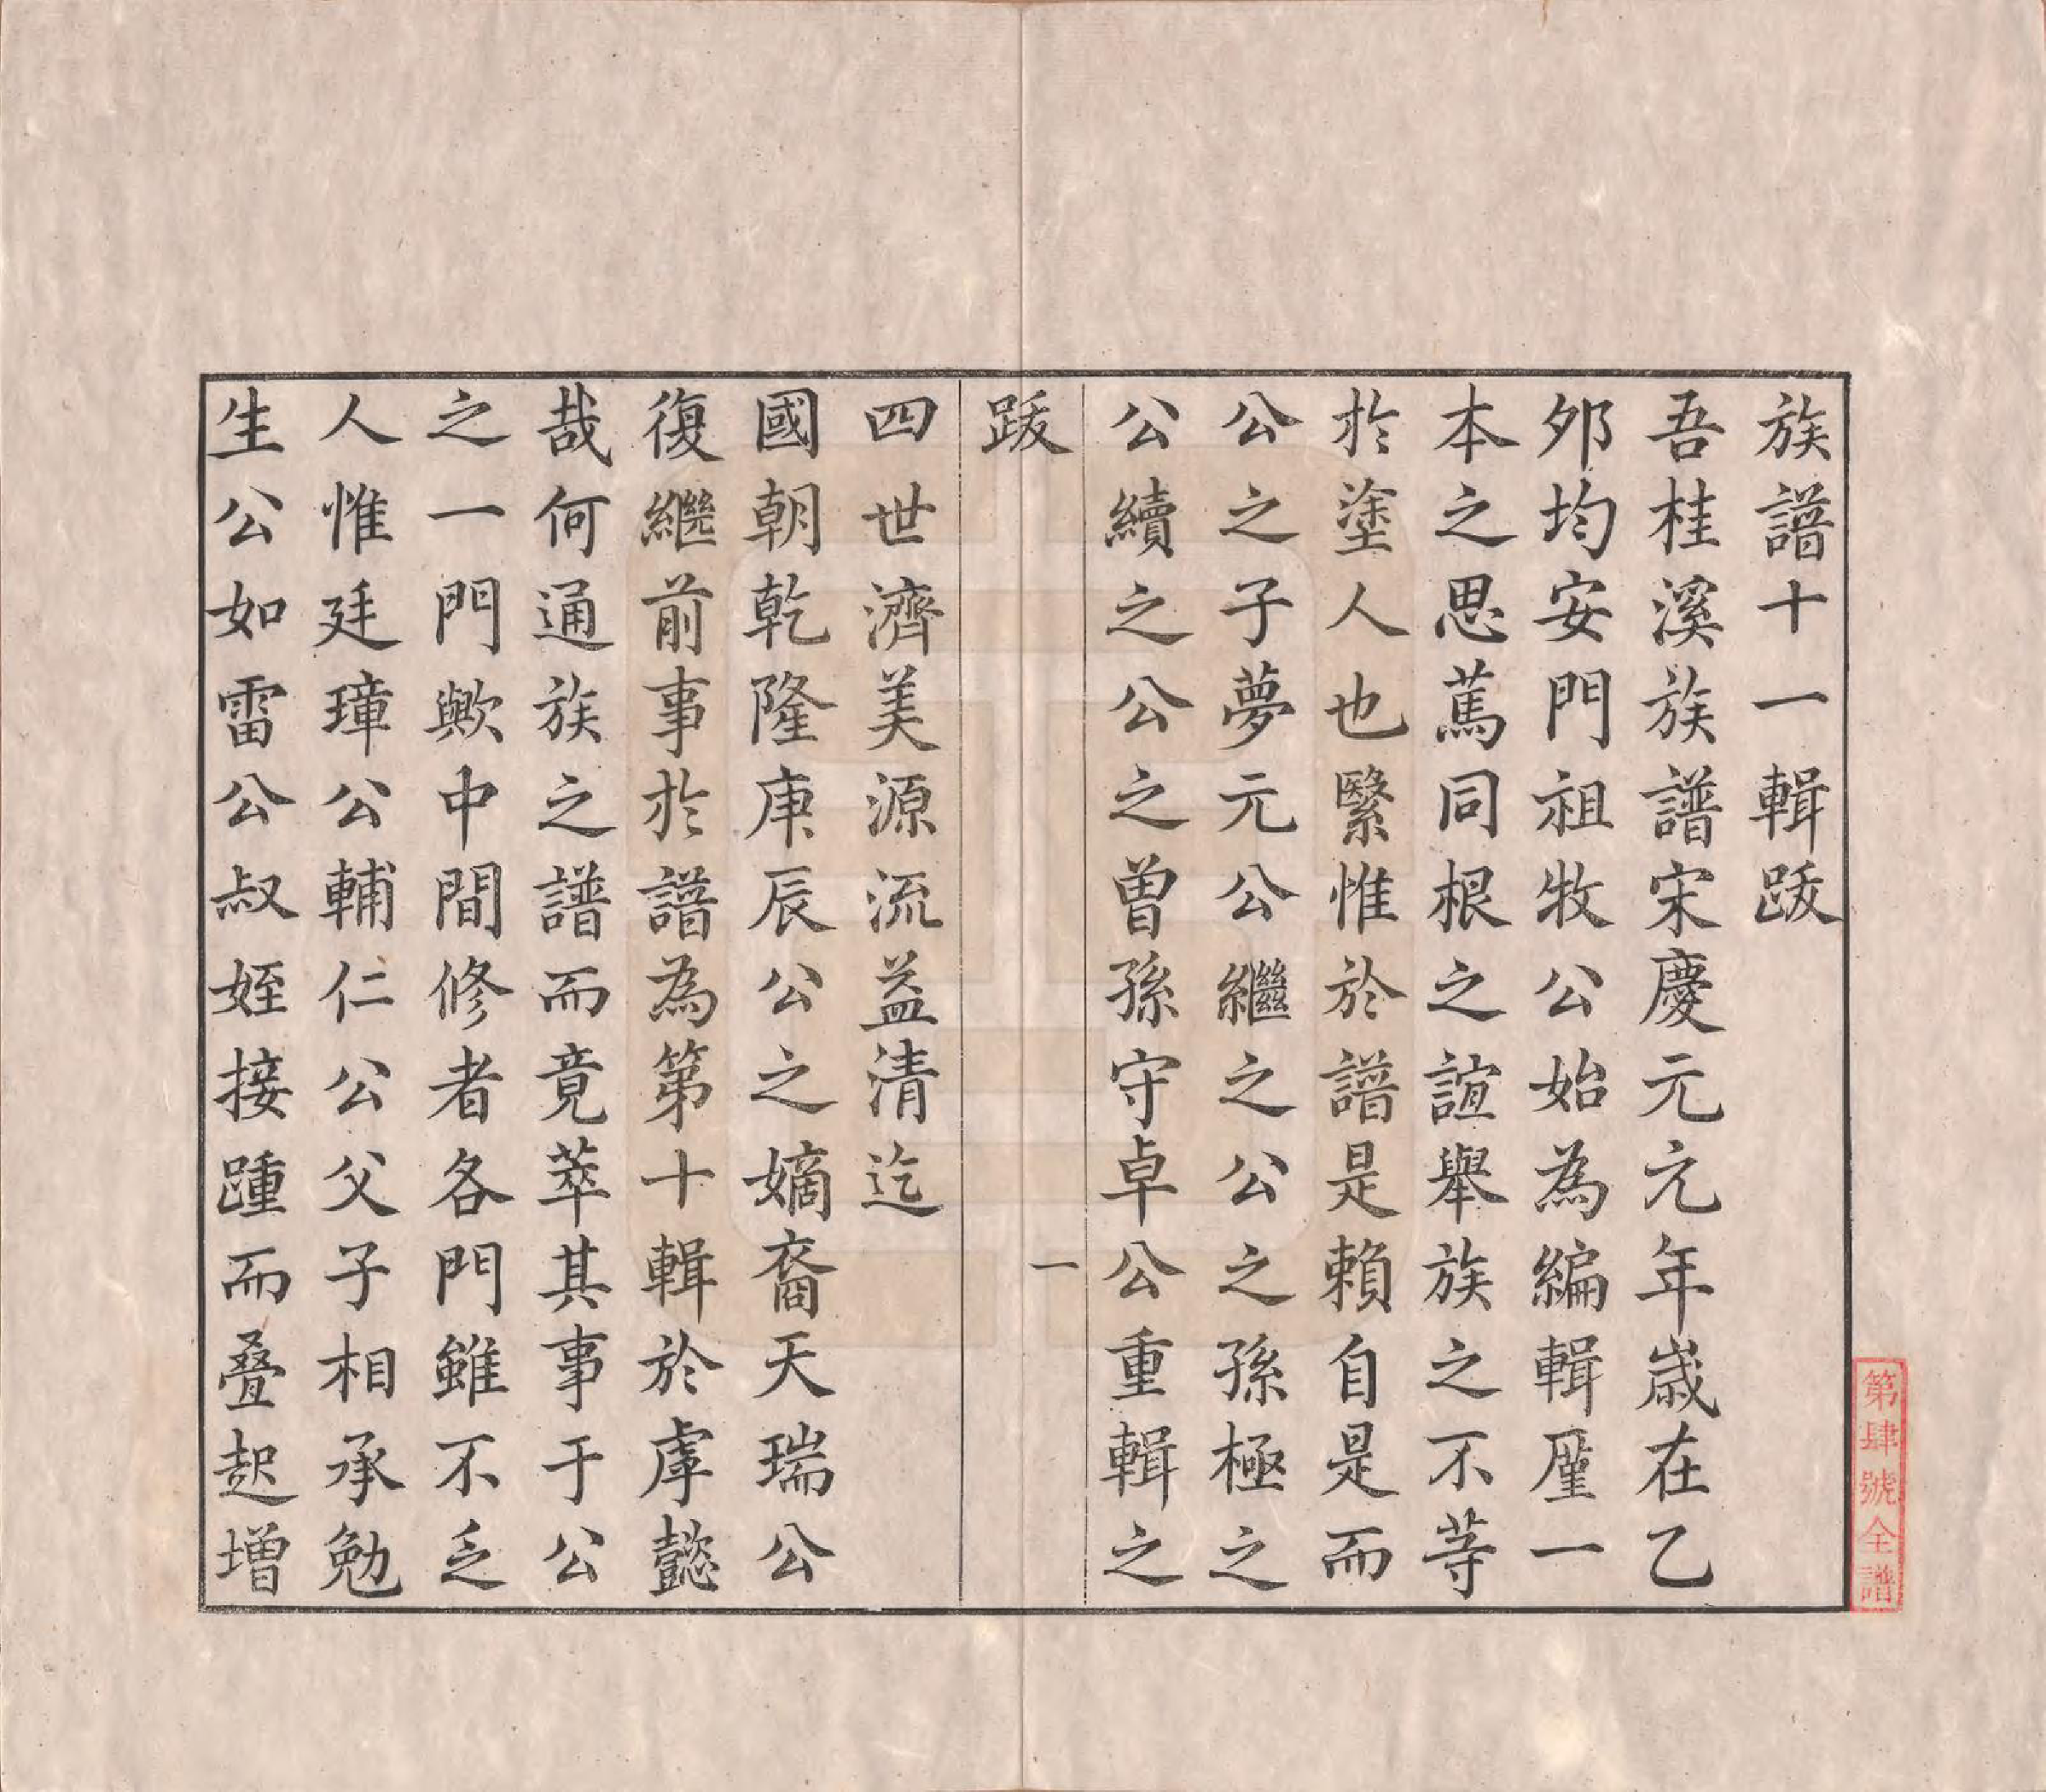 族譜十一輯跋
吾桂溪族譜宋慶元元年歲在乙
夘均安門祖牧公始為編輯厪一
本之思篤同根之誼舉族之不等
扵塗人也繄惟於譜是賴自是而
公之子夢元公繼之公之孫極之
公續之公之曾孫守卓公重輯之
跋
一
四世濟美源流益清迄
國朝乾隆庚辰公之嫡裔天瑞公
復繼前事扵譜為第十輯於虖懿
哉何通族之譜而竟萃其事于公
之一門歟中間修者各門雖不乏
人惟廷璋公輔仁公父子相承勉
生公如雷公叔姪接踵而叠起增
第肆號全譜